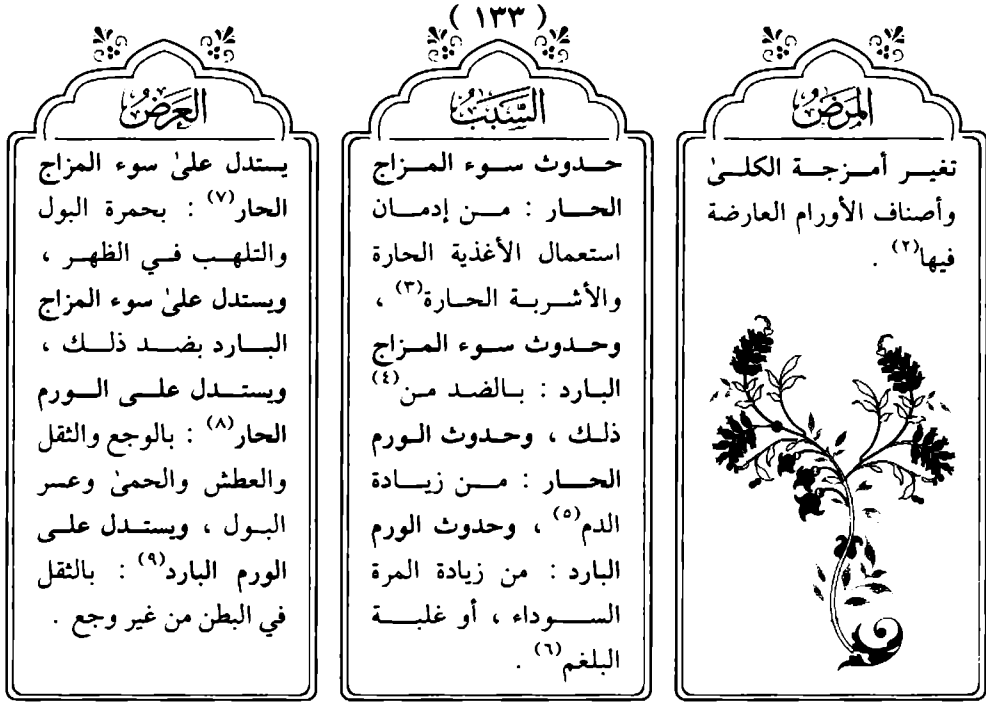 ( ١٣٣ )
المَرَضُ
تغيـر أمـزجـة الكلـىٰ
وأصناف الأورام العارضة
فيها(٢) .
السَّبَبُ
حـدوث سـوء المـزاج
الحـار : مـن إدمـان
استعمال الأغذية الحارة
والأشـربـة الحـارة(٣) ،
وحـدوث سـوء المـزاج
البارد : بـالضـد مـن(٤)
ذلـك ، وحـدوث الـورم
الحـار : مـن زيـادة
الدم(٥) ، وحدوث الورم
البارد : من زيادة المرة
الســوداء ، أو غلبــة
البلغم(٦) .
العَرَضُ
يستدل علىٰ سوء المزاج
الحار(٧) : بحمرة البول
والتلهـب فـي الظهـر ،
ويستدل علىٰ سوء المزاج
البـارد بضـد ذلـك ،
ويستـدل علـى الـورم
الحار(٨) : بالوجع والثقل
والعطش والحمىٰ وعسر
البـول ، ويستـدل علـى
الورم البارد(٩) : بالثقل
في البطن من غير وجع .